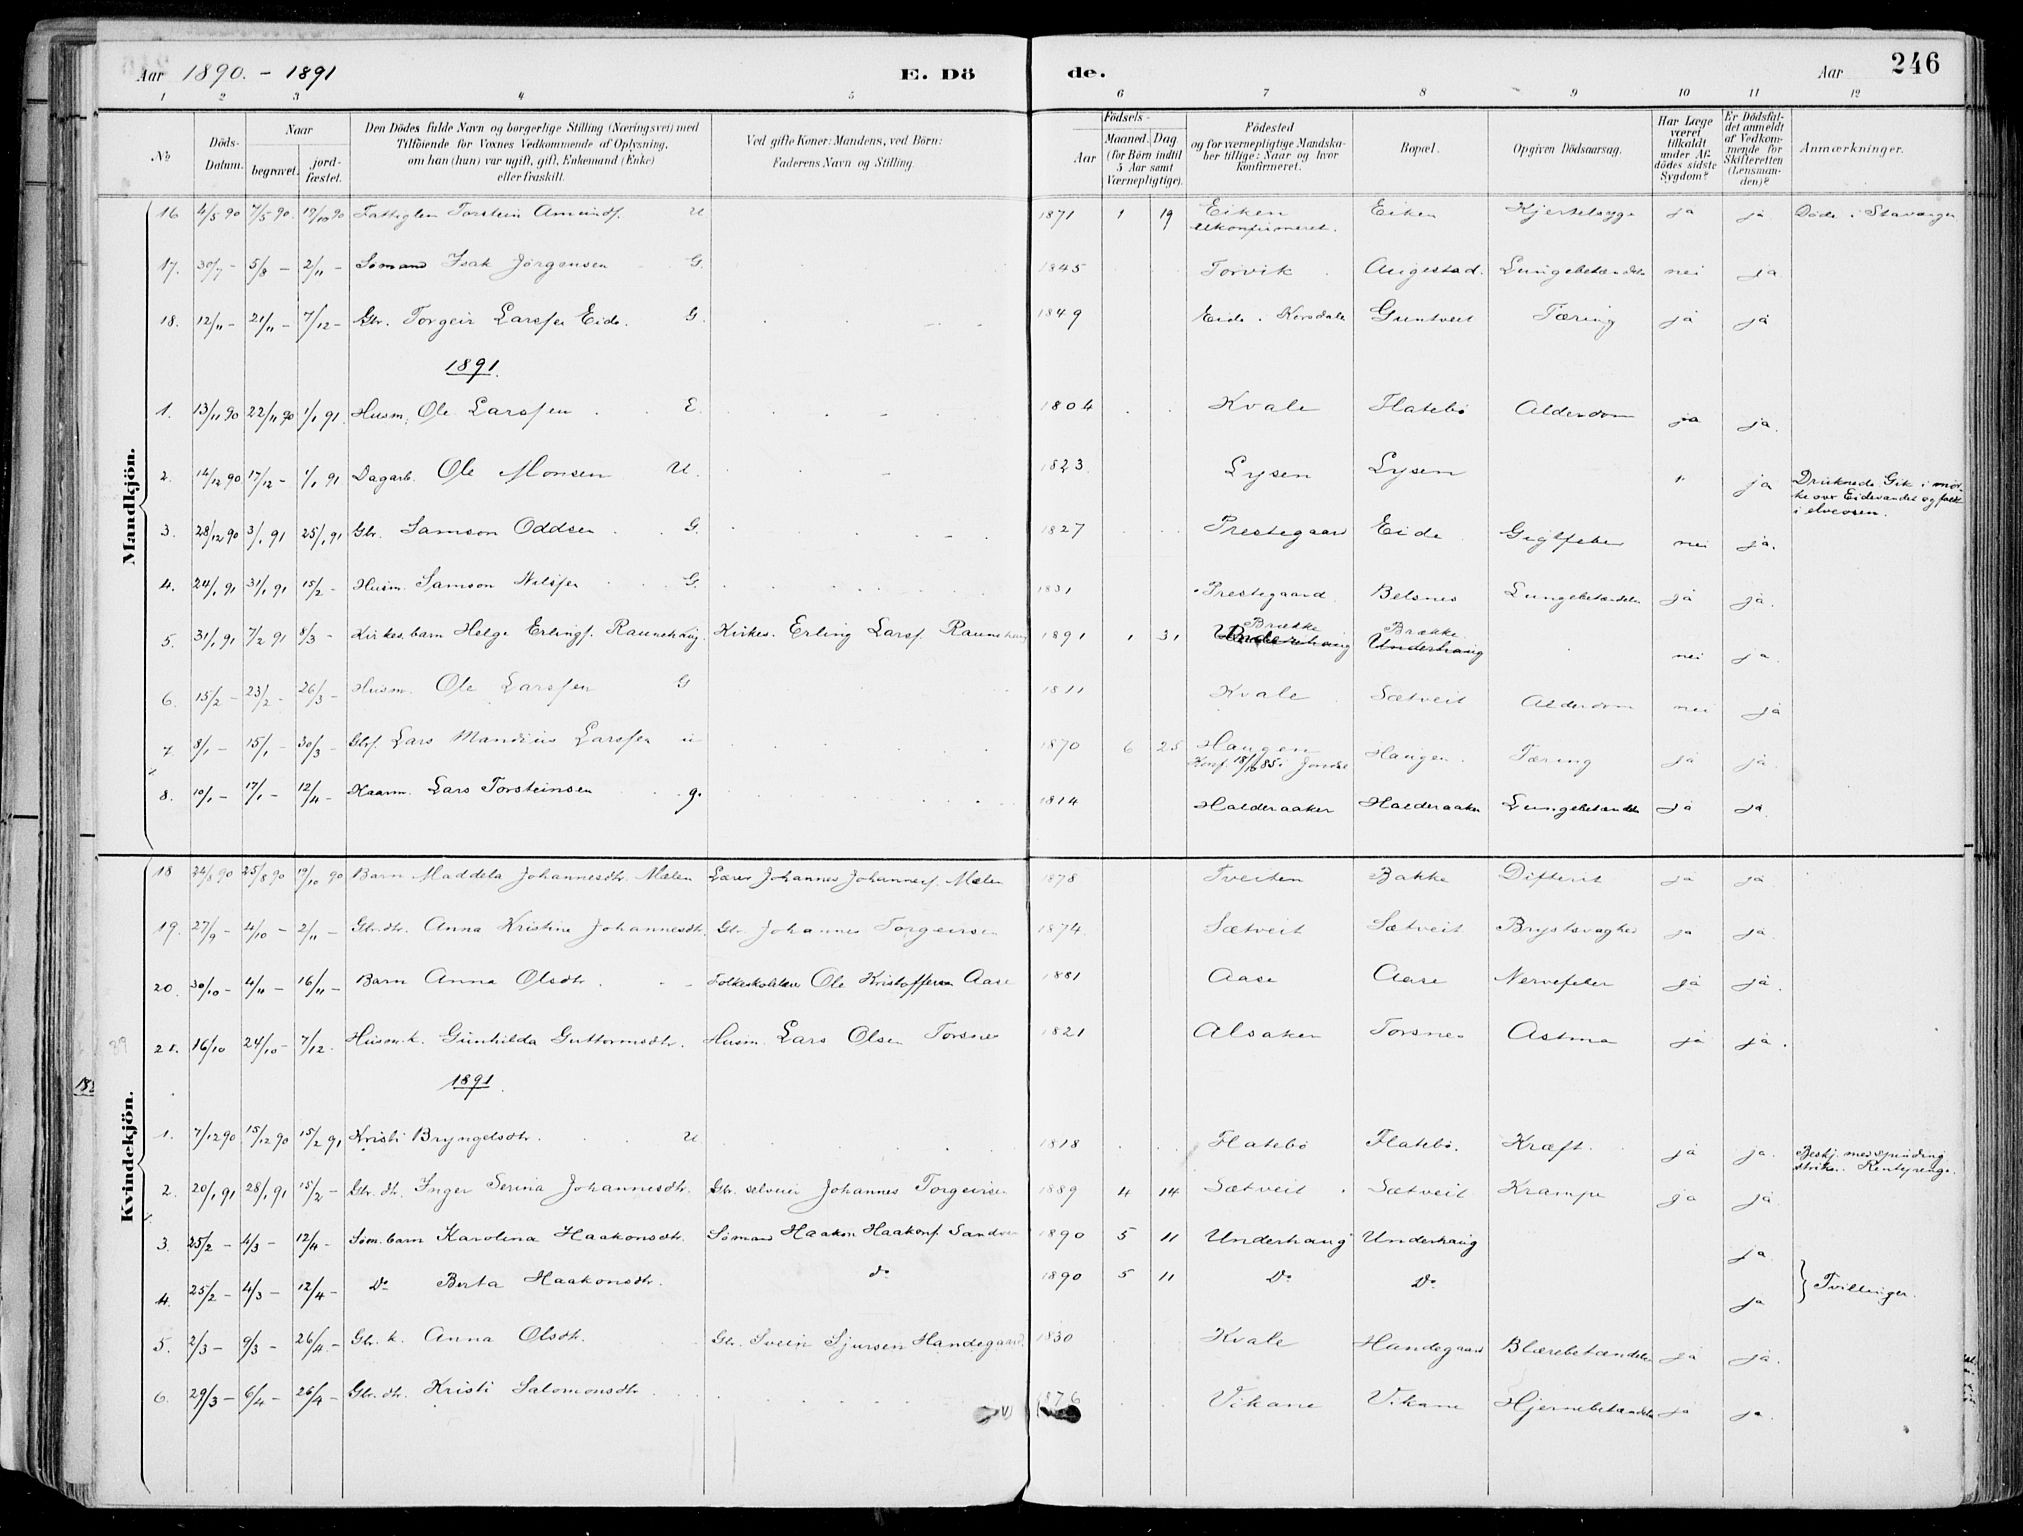 Aar 1890. - 1891 E. Dö de. Aar 246
1 2 3 4 5 6 7 8 9 10 11 12
No Döds-Datum. Naar begravet. jord-fæstet. Den Dödes fulde Navn og borgerlige Stilling (Næringsvei) med Tilföiende for Voxnes Vedkommende af Oplysning, om han (hun) var ugift, gift, Enkemand (Enke) eller fraskilt. Ved gifte Koner: Mandens, ved Börn: Faderens Navn og Stilling. Födsels- Aar Maaned. Dag (for Börn indtil 5 Aar samt Værnepligtige). Födested og for værnepligtige Mandskaber tillige: Naar og hvor konfirmeret. Bopæl. Opgiven Dödsaarsag. Har Læge været tilkaldt under Afdödes sidste Sygdom? Er Dödsfaldet anmeldt af Vedkommende for Skifteretten (Lensmanden)? Anmærkninger.
Mandkjön.
16 4/5 90 7/5 90 19/10 90 Fattiglem Torstein Amundf. U 1871 1 19 Eiken Eiken Kjertelsyge ja ja Døde i Stavanger
ukonfirmeret.
17. 30/7 - 5/8 - 2/11 - Sømand Isak Jørgensen G. 1845 Torvik Augestad Lungebetændelse nei ja
18. 12/11 - 21/11 - 7/12 - Gbr. Torgeir Larsen Eide. G. 1849 Eide Guntveit Tæring ja ja
1891.
1. 13/11 90 22/11 90 1/1 91. Husm. Ole Larssen E. 1804 Kvale Flatebø Alderdom ja ja.
2. 14/12 90 17/12 - 1/1 91 Dagarb. Ole Monsen U. 1823 Lysen Lysen " ja Druknede. Gik i mør-
ke over Eidevandet og faldt
i elveosen.
3. 28/12 90 3/1 91 25/1 91 Gbr. Samson Oddsen G. 1827 Prestegaard Eide Gigtfeber nei ja.
4. 24/1 91 31/1 91 15/2 - Husm. Samson Nilssen G. 1831 Prestegaard Belsnes Lungebetændelse ja ja.
5. 31/1 91 7/2 91 8/3 - Kirkes. barn Helge Erlingf. Raunehaug. Kirkes. Erling Larsf. Raunehaug 1891 1 31 Brække Underhaug Brække Underhaug nei ja.
6. 15/2 - 23/2 - 26/3 - Husm. Ole Larssen G 1811 Kvale Sætveit Alderdom nei ja
7. 8/1 - 15/1 - 30/3 - Gbrf. Lars Mandius Larssen u 1870 6 25 Haugen Haugen. Tæring ja ja.
Konf. 18/10 85 i Jondal
8. 10/1 - 17/1 - 12/4 - Kaarm. Lars Torsteinsen g. 1814 Halderaaker Halderaaker Lungebetændelse ja ja.
Kvindekjön.
18 24/8 90 25/8 90 19/10 90 Barn Maddela Johannesdtr. Mælen Lærer Johannes Johannesf. Mælen 1878 Tveiten Bakke Difterit ja ja.
19. 27/9 - 4/10 - 2/11 - Gbr.dtr. Anna Kristine Johannesdtr. Gbr. Johannes Torgeirsen 1874. Sætveit Sætveit Brystsvaghed ja ja.
20. 30/10 - 4/11 - 16/11 - Barn Anna Olsdtr. Folkeskolelærer Ole Kristoffersen Aase 1881 Aase Aase Nervefeber ja ja.
21. 16/10 24/10 - 7/12 - Husm.k. Gunhilda Guttormsdtr. Husm. Lars Olsen Torsnes 1821 Alsaker Torsnes Astma ja ja.
1891.
1. 7/12 90 15/12 90 15/2 91 Kristi Bryngelsdtr. U 1818 Flatebø Flatebø. Kræft. ja ja.
2. 20/1 91 28/1 91 15/2 - Gbr. dtr. Inger Serina Johannesdtr. Gbr. selveier Johannes Torgeirsen 1889 4 14 Sætveit Sætveit Krampe ja ja
3. 25/2 - 4/3 - 12/4 - Søm. barn Karolina Haakonsdtr. Sømand Haakon Haakonf. Sandven 1890 5 11 Underhaug Underhaug ja.
4. 25/2 - 4/3 - 12/4 - Do Berta Haakonsdtr. do 1890 5 11 Do Do ja } Tvillinger.
5. 2/3 - 9/3 - 26/4 - Gbr. k. Anna Olsdtr. Gbr. Svein Sjursen Handegaard 1830 Kvale Handegaard Blærebetændelse ja ja.
6. 29/3 - 6/4 - 26/4 - Gbr. dtr. Kristi Salomonsdtr. 1876 Vikane Vikane Hjernebetændelse ja ja.